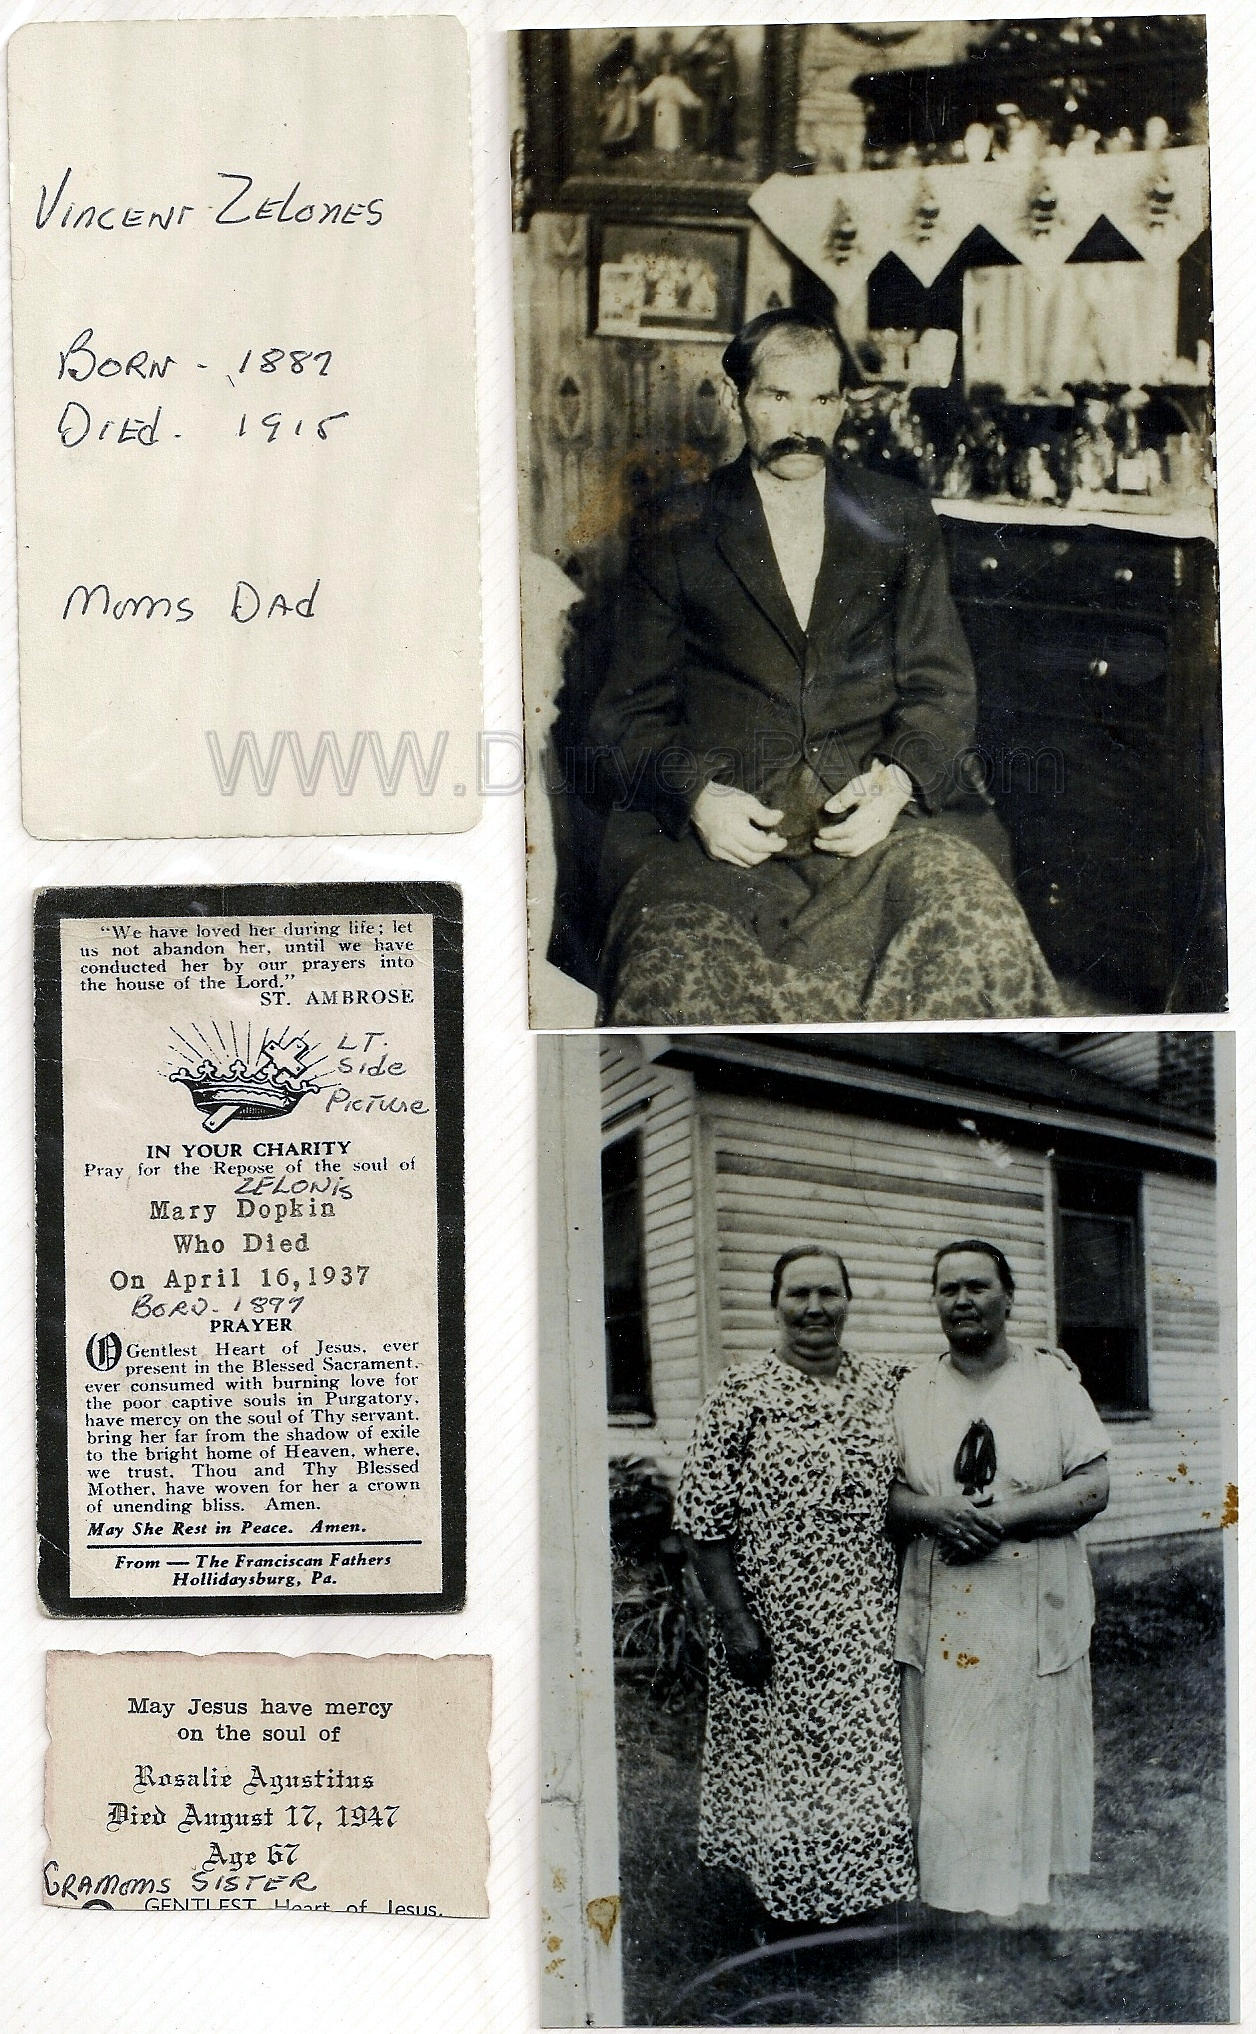 Vincent Zelones
Born - 1887
Died - 1915
Moms Dad
WWW.DuryeaPA.Com
"We have loved her during life; let
us not abandon her, until we have
conducted her by our prayers into
the house of the Lord."
ST. AMBROSE
LT.
Side
Picture
IN YOUR CHARITY
Pray for the Repose of the soul of
ZELONis
Mary Dopkin
Who Died
On April 16,1937
BORN- 1897
PRAYER
O Gentlest Heart of Jesus, ever
present in the Blessed Sacrament,
ever consumed with burning love for
the poor captive souls in Purgatory,
have mercy on the soul of Thy servant,
bring her far from the shadow of exile
to the bright home of Heaven, where,
we trust, Thou and Thy Blessed
Mother, have woven for her a crown
of unending bliss. Amen.
May She Rest in Peace. Amen.
From — The Franciscan Fathers
Hollidaysburg, Pa.
May Jesus have mercy
on the soul of
Rosalie Agustitus
Died August 17, 1947
Age 67
GRAMOMS SISTER
GENTLEST Heart of Jesus,